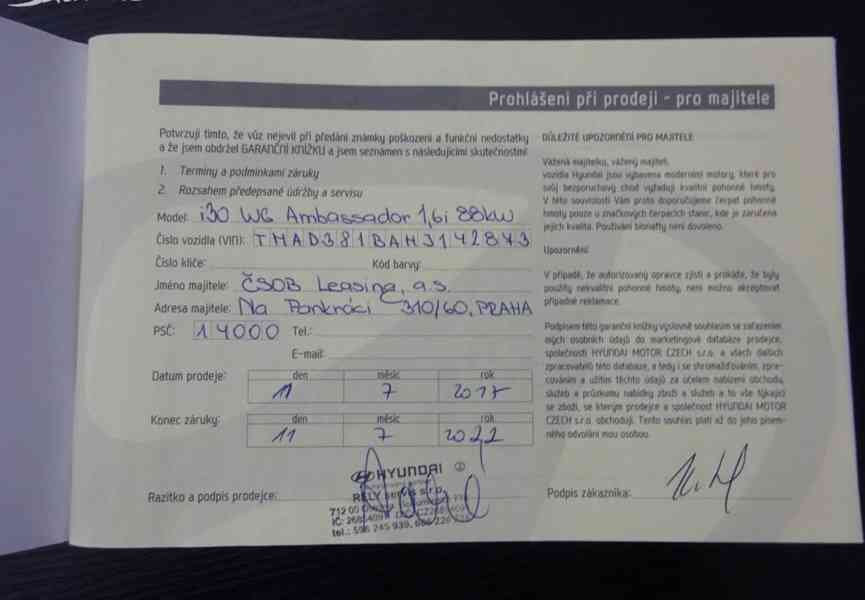 Prohlášení při prodeji - pro majitele
Potvrzuji tímto, že vůz nejevil při předání známky poškození a funkční nedostatky
a že jsem obdržel GARANČNÍ KNÍŽKU a jsem seznámen s následujícími skutečnostmi:
1. Termíny a podmínkami záruky
2. Rozsahem předepsané údržby a servisu
Model: i30 WG Ambassador 1,6i 88kW
Číslo vozidla (VIN): TMAD381BAHJ142843
Číslo klíče: Kód barvy:
Jméno majitele: ČSOB Leasing, a.s.
Adresa majitele: Na Pankráci 310/60, PRAHA
PSČ: 14000 Tel.:
E-mail:
Datum prodeje: den měsíc rok
11 7 2017
Konec záruky: den měsíc rok
11 7 2022
HYUNDAI
Razítko a podpis prodejce: RELY servis s.r.o.
712 00
tel.: 596 245 939,
DŮLEŽITÉ UPOZORNĚNÍ PRO MAJITELE
Vážená majitelko, vážený majiteli,
vozidla Hyundai jsou vybavena moderními motory, které pro
svůj bezporuchový chod vyžadují kvalitní pohonné hmoty.
V této souvislosti Vám proto doporučujeme čerpat pohonné
hmoty pouze u značkových čerpacích stanic, kde je zaručena
jejich kvalita. Používání bionafty není dovoleno.
Upozornění:
V případě, že autorizovaný opravce zjistí a prokáže, že byly
použity nekvalitní pohonné hmoty, není možno akceptovat
případné reklamace.
Podpisem této garanční knížky výslovně souhlasím se zařazením
mých osobních údajů do marketingové databáze prodejce,
společnosti HYUNDAI MOTOR CZECH s.r.o. a všech dalších
zpracovatelů této databáze, a tedy i se shromažďováním, zpra-
cováním a užitím těchto údajů za účelem nabízení obchodu,
služeb a průzkumu nabídky zboží a služeb a to vše týkající
se zboží, se kterým prodejce a společnost HYUNDAI MOTOR
CZECH s.r.o. obchodují. Tento souhlas platí až do jeho písem-
ného odvolání mou osobou.
Podpis zákazníka: